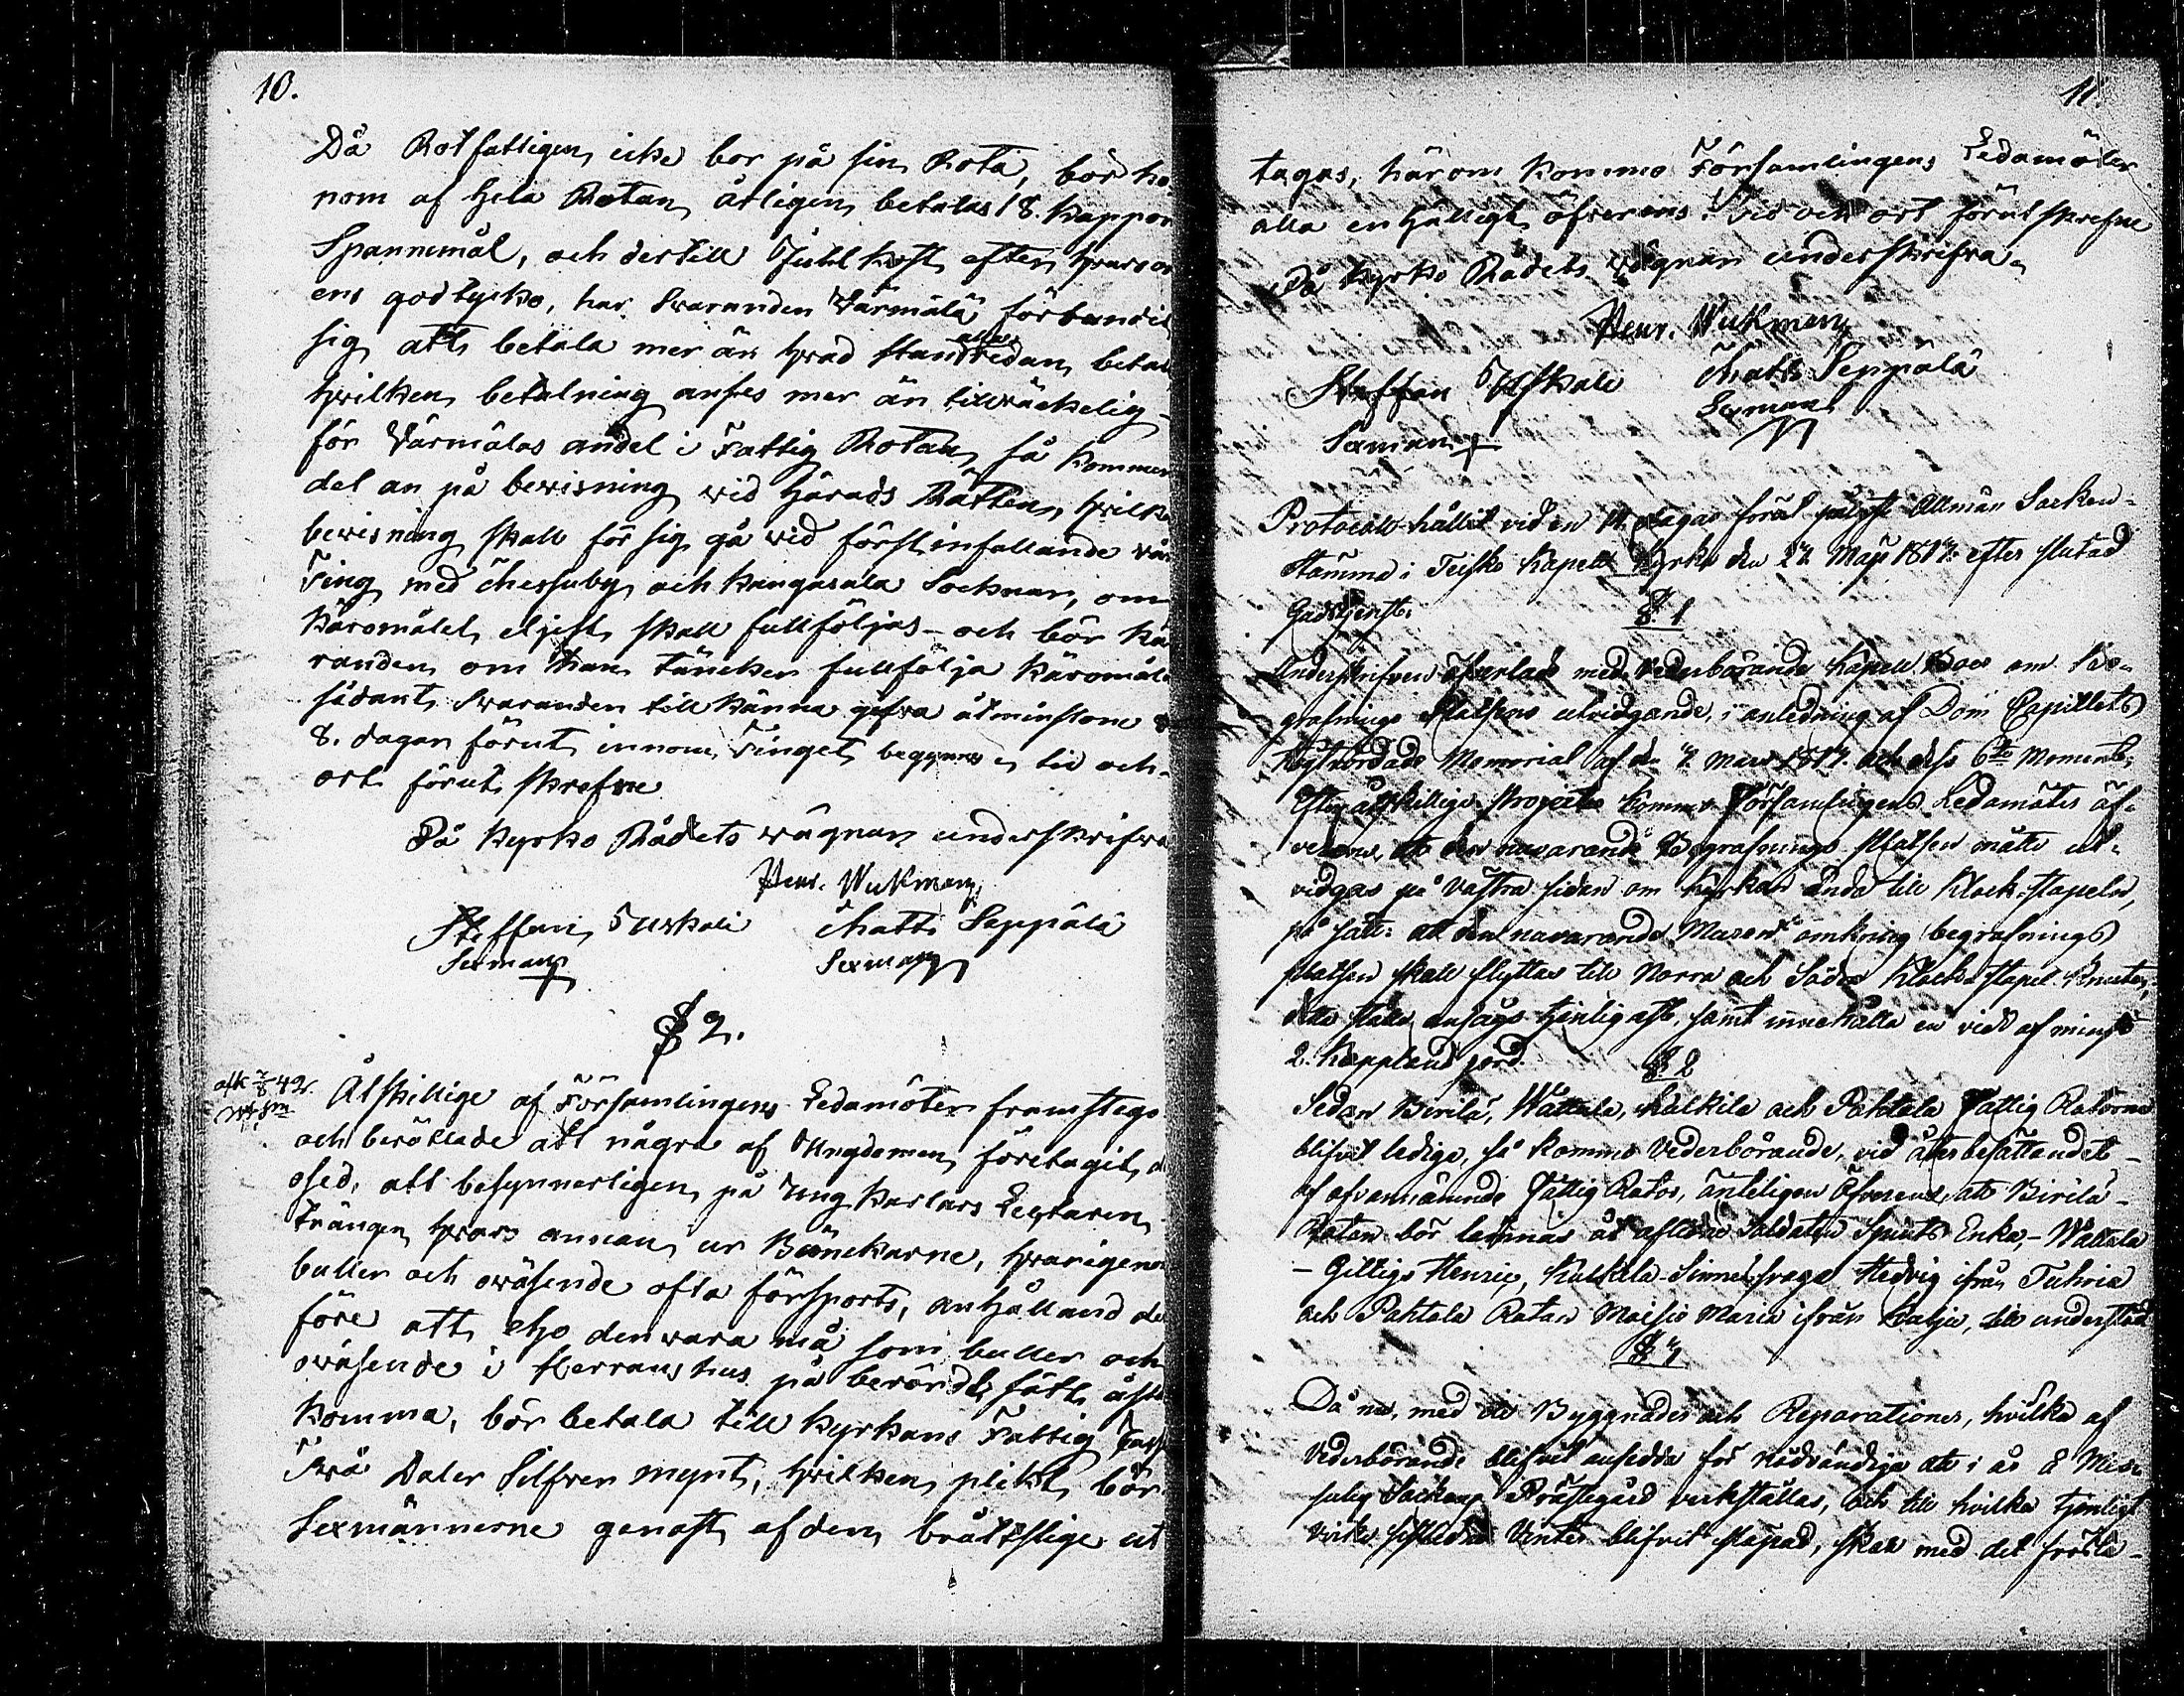 10.
Då Rotfattigen icke bor på sin Rota, bör ho
nom af hela Rotan årligen betalas 18. kappor
Spannemål, och dertill Juhl kost efter hvars och
ens godtycko, har Svaranden Värmälä förbundit
sig att betala mer än hvad redan betal
hvilken betalning anses mer än tillräckelig
för Värmäläs andel i Fattig Rotan, så kommer
del an på bevisning vid Härads Rätten, hvilken
bevisning skall för sig gå vid först infallande vår
Ting med Messuby och Kangasala Socknar, om
Käromålet eljest skall fullföljas - och bör Kä
randen om han täncker fullfölja Käromålet
sådant Svaranden till känna gifva åtminstone
8. dagar förut innom Tinget begynnes, tid och
ort förut skrefne
På Kyrko Rådets vägnar underskrifva
Henr. Wickman
Steffan Uskali Matts Seppälä
Sexman Sexman
§ 2.
Åtskillige af Församlingens Ledamöter framstego
och berättade att några af Ungdomen företagit
osed, att besynnerligen på ung karlars Legtaren
trängen hvars annan ur Bänckarne, hvarigenom
buller och oväsende ofta försports, anhålland der
före att eho den vara må som buller och
oväsende i Herrans hus på berördt sätt åsta
komma, bör betala till Kyrkans Fattig
Två Daler Silfver mynt, hvilken plikt bör
Sexmännerne genast af den brottslige ut
11.
tagas, härom kommo Församlingens Ledamöter
alla enhälligt öfverens. Tid och ort förut skrefne
På Kyrko Rådets vägnar underskrifva
Henr. Wickman
Steffan Uskali Matts Seppälä
Sexman Sexman
Protocoll hållit vid en 14 dagar förut pålyst Allmän Socken-
stämma i Teisko Kapell Kyrka den 27 Maji 1817. efter slutad
Gudstjenst.
§. 1
Underskrifven öfverlade med Vederbörande Kapell Boer om Be-
grafnings Platsens utvidgande, i anledning af Dom Capitlets
Högtvördade Memorial af d. 7 Mars 1817. och dess 6te Moment;
Efter åtskillige Projecter kommo Församlingens Ledamöter öf-
verens, att den navarande Begrafnings Platsen måtte ut-
vidgas på västra sidan om Kyrkan ända till Klock-stapeln,
på sätt: att den navarande Muren omkring begrafnings
platsen skall flyttas till Norra och Södra Klockstapel Knuten,
detta ställe ansågs tjenligast, samt innehålla en vidd af minst
2. Kappland jord.
§. 2
Sedan Birilä, Wattula, Kulkila och Pahtala Fattig Rotorne
blifvit ledige, så komma Vederbörande, vid återbesättandet
af ofvannämnde Fattig Rotor, änteligen öfverens, att Birilä
Rotan bör lemnas åt aflidne Soldaten Spints Enka, - Wattula
- Gilligs Henric, Kulkila - Sinnesfraga Hedvig ifrån Tuhria
och Pahtala Rotan Moisio Maria ifrån Kulju, till understöd
§ 3
Då nu, med de Byggnader och Reparationer, hvilka af
Vederbörande blifvit ansedda för nödvändiga att i år å Mes-
suby Sockens Prästegård verkställas, och till hvilka tjenligt
virke sistledne Vinter blifvit skapad, skall med det första